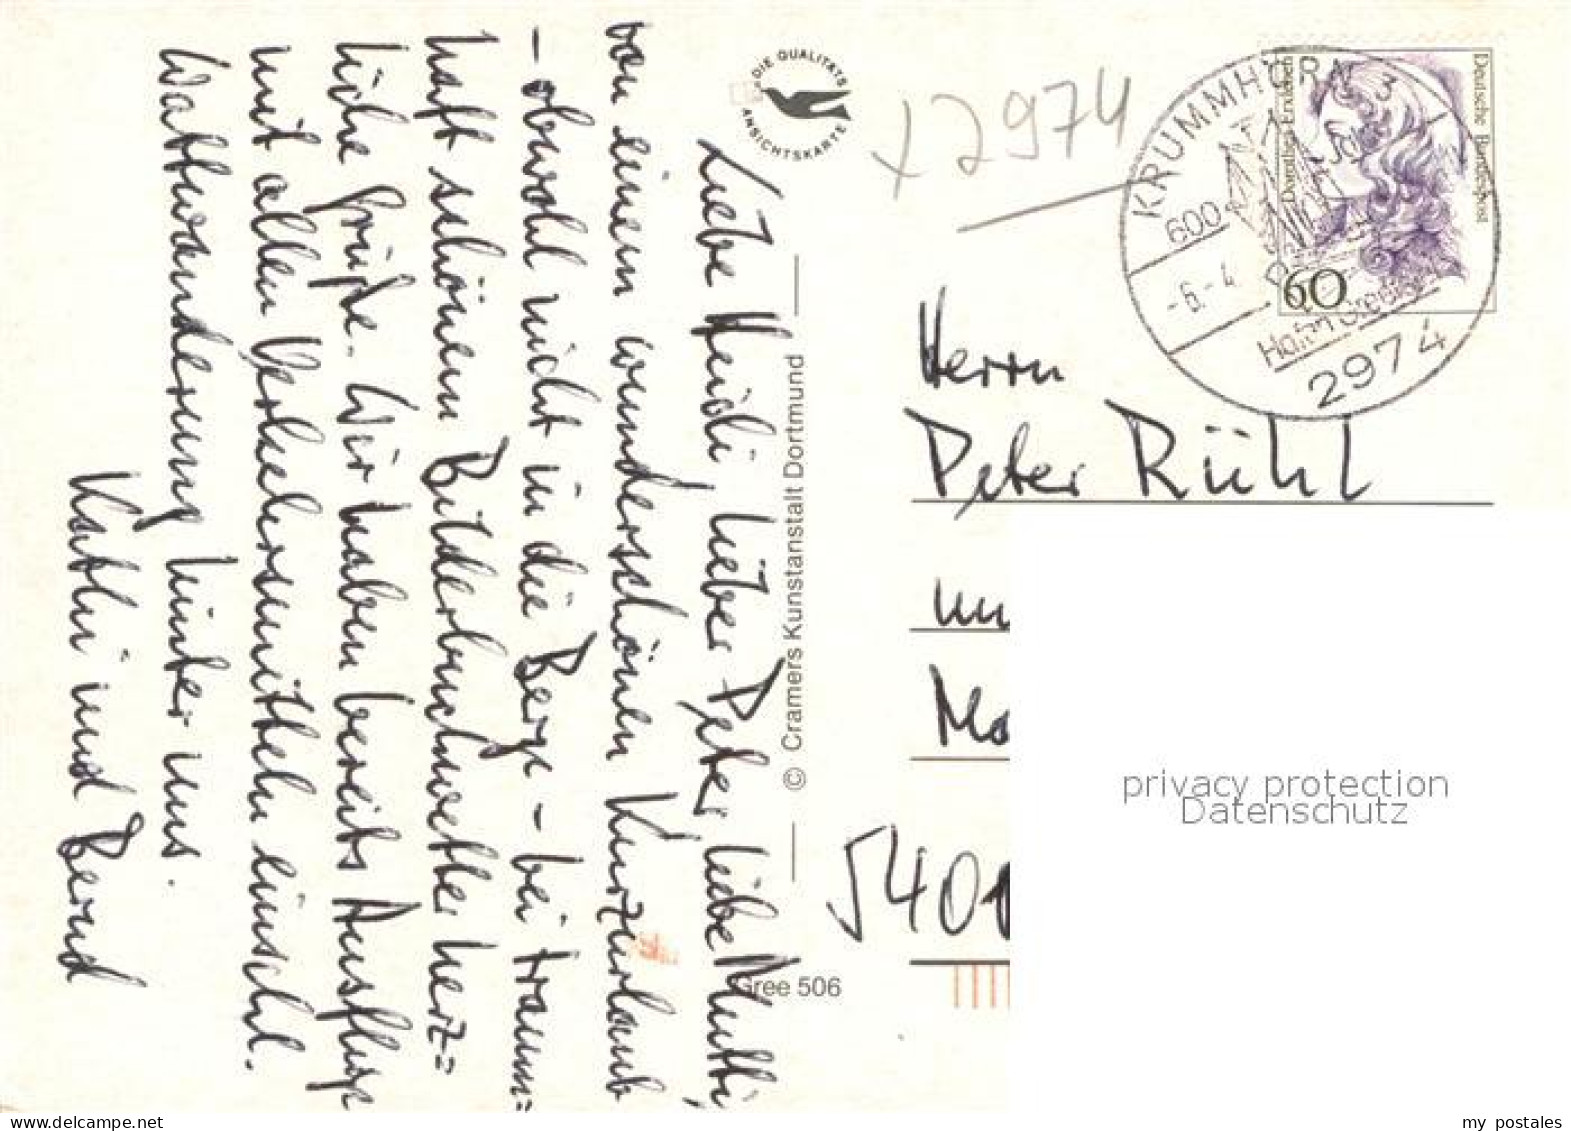 Liebe Heidi, lieber Peter, liebe Mutti,
von einem wunderschönen Kurzurlaub
- obwohl nicht in die Berge - bei traum=
haft schönem Bilderbuchwetter herz=
liche Grüße. Wir haben bereits Ausflüge
mit allen Verkehrsmitteln einschl.
Wattwanderung hinter uns.
Kathi und Bernd
DIE QUALITÄTS
ANSICHTSKARTE
© Cramers Kunstanstalt Dortmund
Gree 506
2974
KRUMMHÖRN 3
600
-6.-4
Hafen Greetsiel
2974
Deutsche Bundespost
Dorothea Erxleben
60
Herrn
Peter Rühl
un
Mo
5401
privacy protection
Datenschutz
www.delcampe.net
my_postales